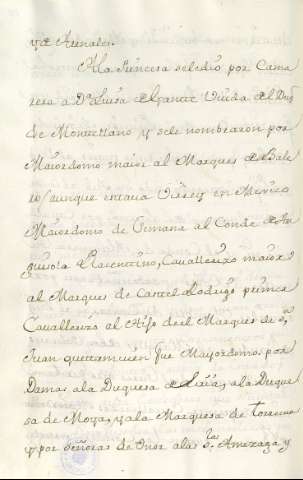 y de Arenales.
Ala Princesa sele dio por Cama
rera a D.ª Luisa de Gante Viuda del Duq
de Montellano y sele nombraron por
Maiordomo maior al Marques de Bale
ro (aunque estava Virrey en Mexico
Maiordomo de Semana al Conde de An
guisola Placentino, Cavallerizo maior
al Marques de Castel Rodrigo primer
Cavallerizo al Hijo del Marques de Sn
Juan que tambien fue Mayordomo. por
Damas ala Duquesa de Liria, ala Duque
sa de Moya, y ala Marquesa de Torrecuso
y por Señoras de Onor alas S.ras Amezaga y